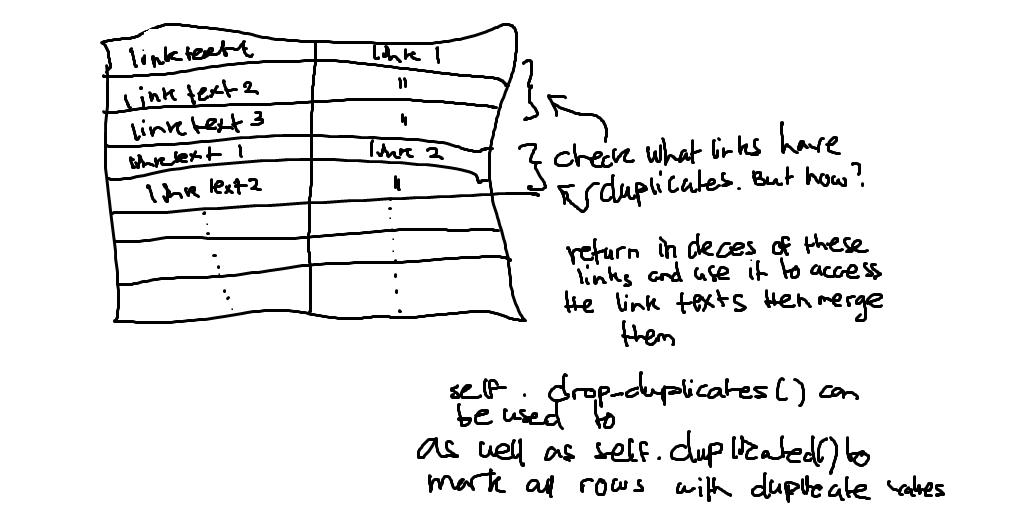 linktext1 link 1
link text 2 "
link text 3 "
link text 1 link 2
link text 2 "
check what links have
duplicates. But how?
return indeces of these
links and use it to access
the link texts then merge
them
self. drop-duplicates() can
be used to
as well as self.duplicated() to
mark all rows with duplicate values